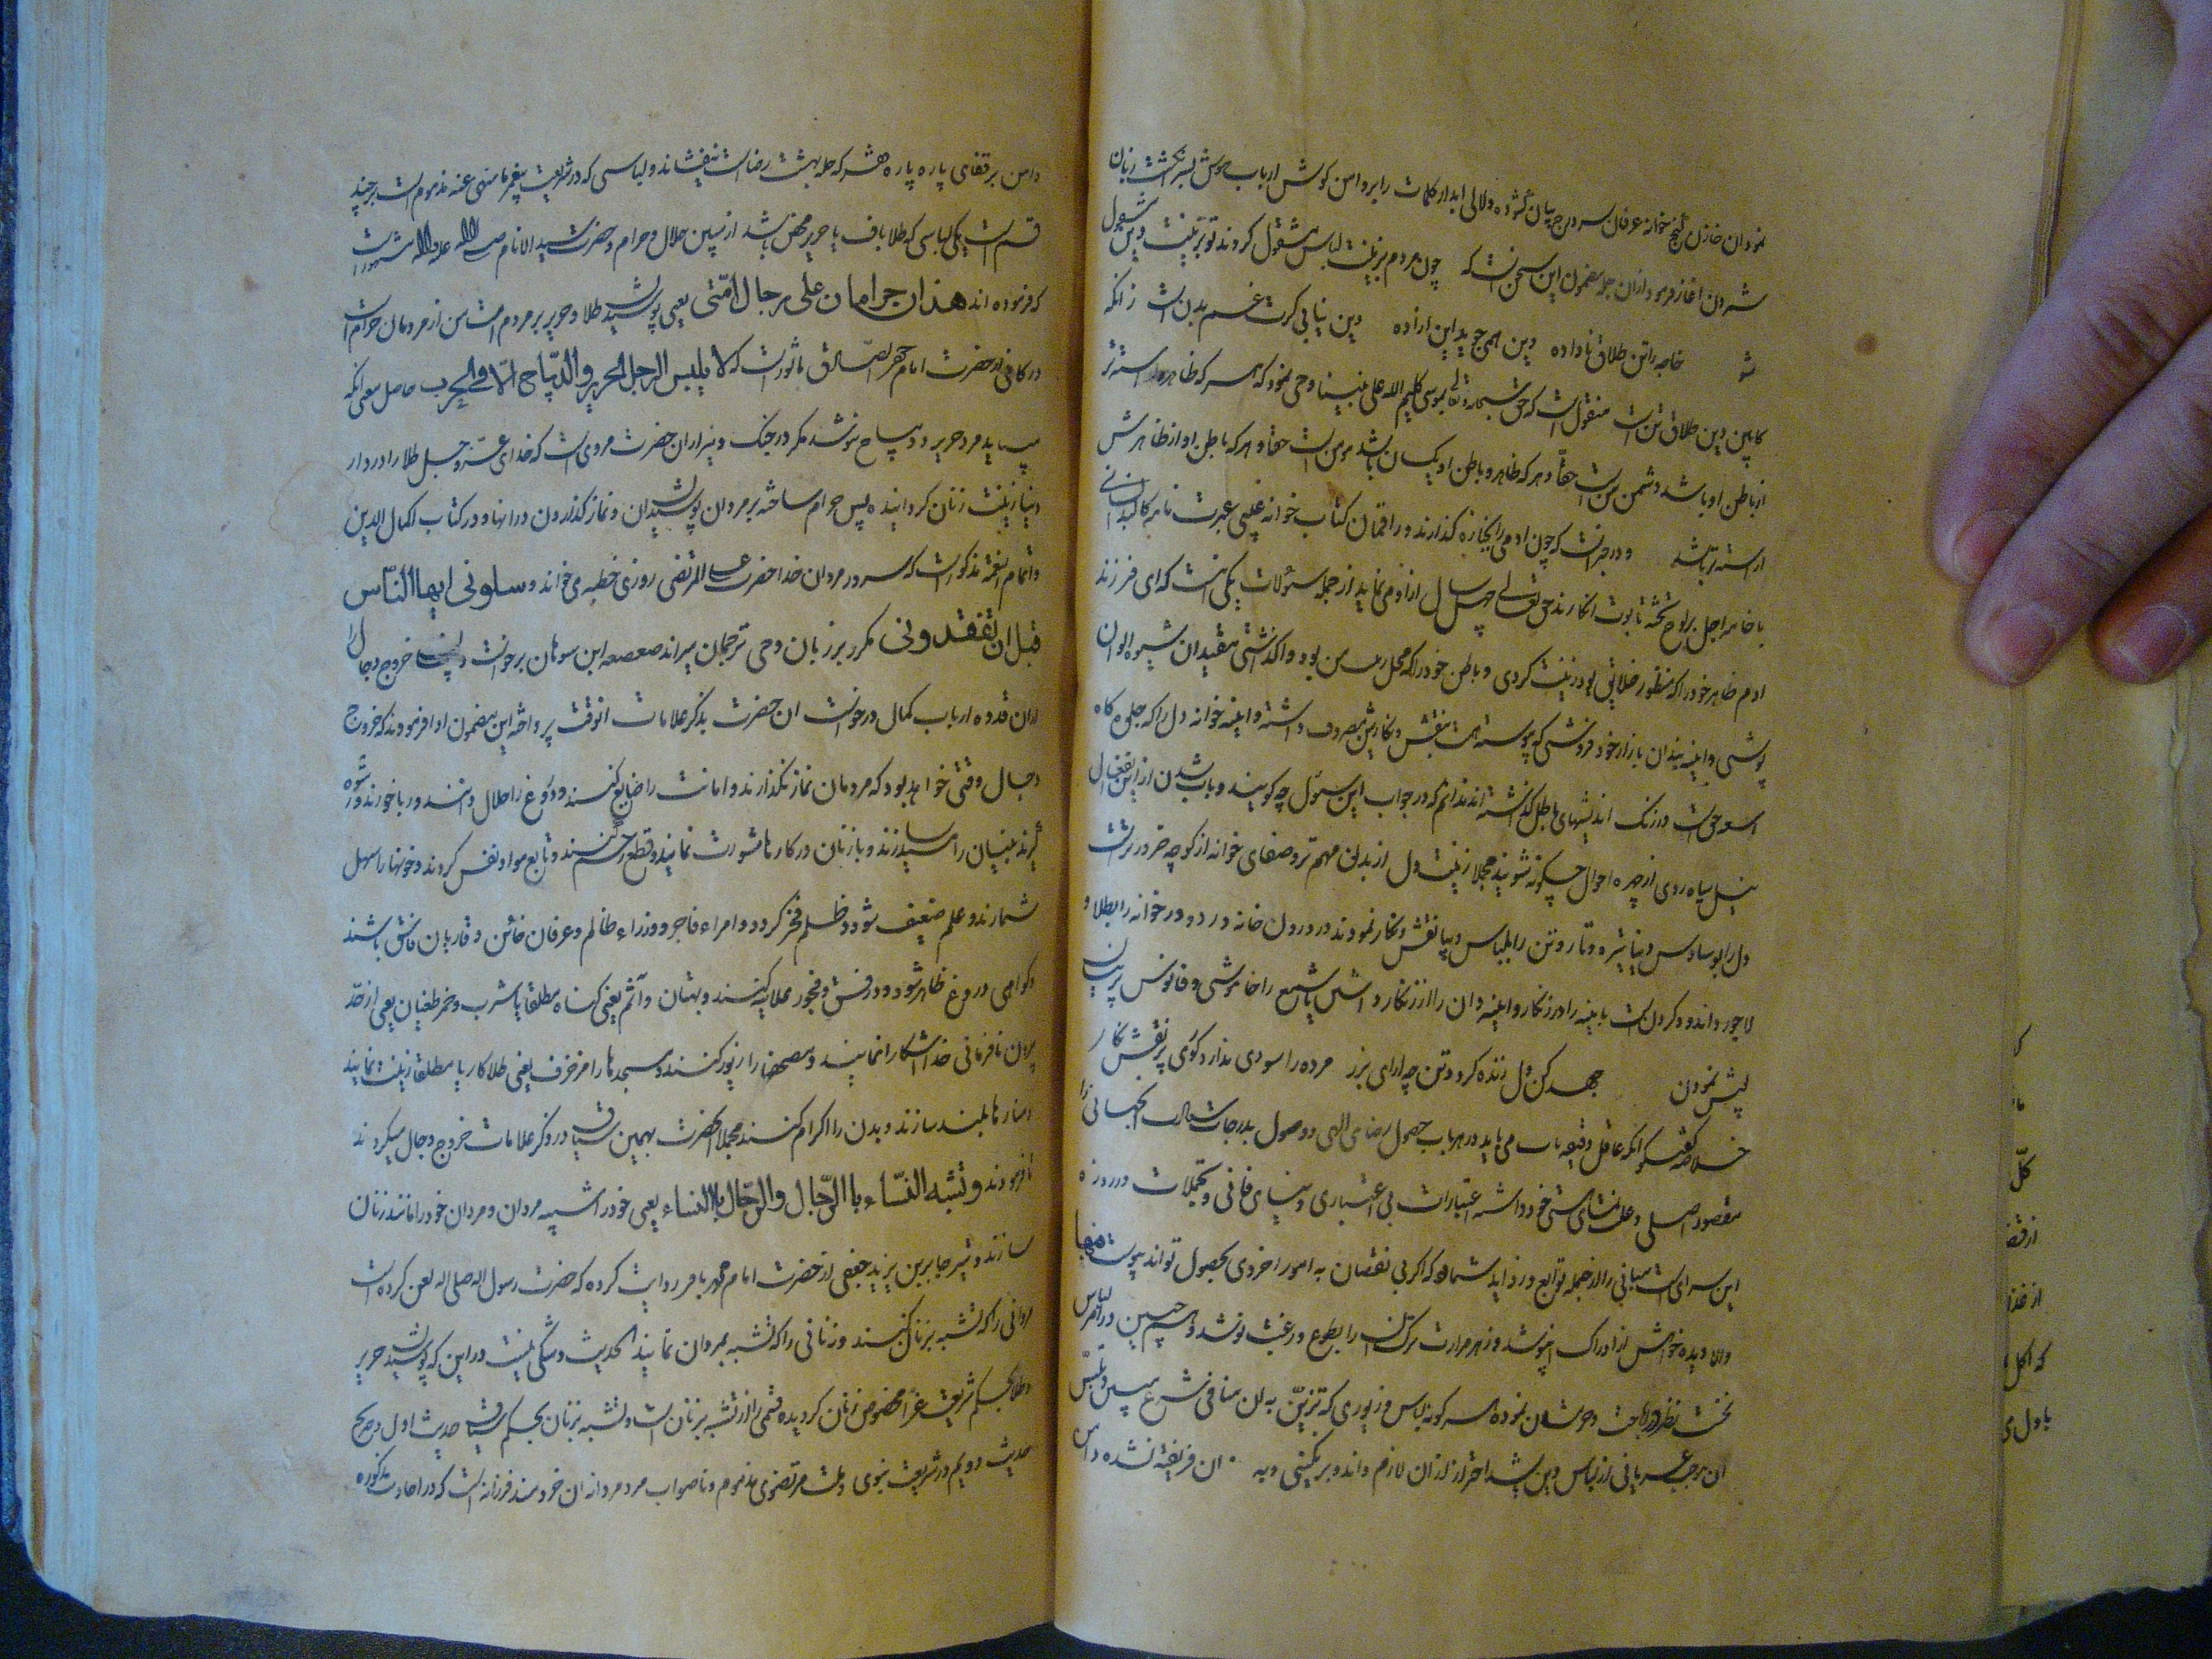 نمودان خازن گنج خوانه عرفان سر درج بیان گشوده ولالی ابدار کلمات را بر دامن کوش ارباب هوش بسر نکشت زبان
شمردن اغاز فرمود ازان جمله مضمون این سخن است که چون مردم بزینت لباس مشغول کردند تو بزینت دین مشغول
شو خاجه را تن طلاق نا داده دین همی جوید این ازاده دین نیابی کرت غم بدن است زانکه
کابین دین طلاق تن است منقول است که حق سبحانه وتعالی بموسی کلیم الله علی نبینا وحی نمود که هر که ظاهر او اراسته تر
از باطن او باشد دشمن من است حقا و هر که ظاهر و باطن او یکسان باشد مومن است حقا و هر که باطن او از ظاهرش
اراسته تر باشد ودر خبر است که چون ادمی را بجنازه گذارند و راقمان کتاب خوانه غیبی عبرت نامه
با خامه اجل بر لوح تخته تابوت انکارند حق تعالی چهل سوال ازاو می نماید از جمله سئوالات یکی اینست که ای فرزند
ادم ظاهر خود را که منظور خلایق بود زینت کردی و باطن خود را که محل من بود واگذاشتی مقیدان شیوه الوان
پوشی و اینه بندان بازار خود فروشی که پیوسته همت بنقش ونگار تن مصروف داشته و اینه خوانه دل را که جلوه گاه
حق است در زنک اندیشهای باطل گذاشته اند ندانم که در جواب این سئوال چه گویند و باب شدن از این انفعال
سیاه روی از چهره احوال چگونه شویند مجملا زینت دل از بدن مهم تر و صفای خوانه از کوچه ضرور تر است
دل را بوساوس دنیا تیره و تار و تن را بلباس دیبا نقش ونگار نمودند در درون خانه درد و در خوانه را بطلا و
لاجورد اندودن کردن است یا اینه را در زنگار و اینه دان را زرنگار داشتن یا شمع را خاموشی و فانوس پر
پیش نمودن جهد کن دل زنده کرد و تن چه ارای بزر مرده را سودی ندارد گوی پر نقش نگار
خلاصه گفتگو انکه عاقل دقیقه یاب می باید در هر باب حصول رضای الهی و وصول بدرجات سعادت انجهانی را
مقصود اصلی و علت هستی خود دانسته اعتبارات بی اعتباری دنیای فانی و تجملات دو روزه
این سرای را از جمله توابع و زواید شمارد که اگر بی نقصان به امور اخروی بحصول تواند پیوست
والا دیده خواهش از ادراک ان پوشد و زهر مرارت ترک ان را بطوع و رغبت نوشد و همچنین در امر لباس
نخست نظر در باحت و حرمت ان نموده هر گونه لباس و زیوری که تزین به ان منافی شرع مبین و تلبس
ان موجب عریانی از لباس دین باشد احتراز از ان لازم داند و برنکینی وبه ان فریفته نشده دامن
دامن بر قفای پاره پاره هشتر که حله بهشت رضاست نیفشاند و لباسی که در شریعت پیغمبر ما منهی عنه مذموم است بر چند
قسم است یکی لباسی که طلا باف یا حریر محض باشد از مبین حلال و حرام و حضرت سید الانام صلی الله علیه واله مشهور است
که فرموده اند هذان حرامان علی رجال امّتی یعنی پوشیدن طلا و حریر بر مردم امت من از مردان حرام است
در کافی از حضرت امام جعفر الصّادق ماثور است که لا یلبس الرجل الحریر والدّیباج الّا فی الحرب حاصل معنی انکه
میباید مرد حریر و دیباج نپوشد مگر در جنگ و نیز از ان حضرت مروی است که خدای عزّ و جل طلا را در دار
دنیا زینت زنان گردانیده پس حرام ساخته بر مردان پوشیدن و نماز گذاردن در انها و در کتاب اکمال الدین
و اتمام النعمة مذکور است که سرور مردان خدا حضرت علی المرتضی روزی خطبه می خواند و سلونی ایها النّاس
قبل ان تفقدونی مکرر بر زبان وحی ترجمان میراند صعصعه ابن صوهان برخواست و خروج دجال را
از ان قدوه ارباب کمال درخواست ان حضرت بذکر علامات انوقت پرداخته این مضمون ادا فرمودند که خروج
دجال وقتی خواهد بود که مردمان نماز نگذارند و امانت را ضایع کنند و دروغ را حلال دانند و ربا خورند و رشوه
گیرند بنیان را بسازند و با زنان در کارها مشورت نمایند و قطع رحم کنند و تابع هوا و نفس گردند و خونها را سهل
شمارند و علم ضعیف شود و ظلم فخر گردد و امراء فاجر و وزراء ظالم و عرفان خائن و قاریان فاسق باشند
و گواهی دروغ ظاهر شود و فسق و فجور علانیه کنند و بهتان و آثم یعنی گناه مطلقا یا شرب و خمر طغیان یعنی از حدّ
برون نافرمانی خدا اشکارا نمایند و مصحفها را زیور کنند و مسجدها را مزخرف یعنی طلا کار یا مطلقا زینت نمایند
و منارها بلند سازند و بدان را اکرام کنند مجملا انحضرت بهمین سیاق در ذکر علامات خروج دجال میکردند
تا فرمودند و تشبه النّساء بالرّجال والرّجال بالنساء یعنی خود را شبیه مردان و مردان خود را مانند زنان
سازند و نیز جابر بن یزید جعفی از حضرت امام محمد باقر روایت کرده که حضرت رسول اله صلی اله لعن کرده است
مردانی را که تشبه بزنان کنند و زنانی را که تشبه بمردان نمایند الحدیث و شکی نیست در این که پوشیدن حریر
و طلا بحکم شریعت غرّا مخصوص زنان گردیده قسمی را از تشبه بزنان است و تشبه بزنان بحکم سیاق حدیث اول و صریح
حدیث دویم در شریعت نبوی و ملت مرتضوی مذموم و ناصواب مرد مردانه ان خردمند فرزانه است که در احادیث مذکوره
کلّ
از خدا
که اکل